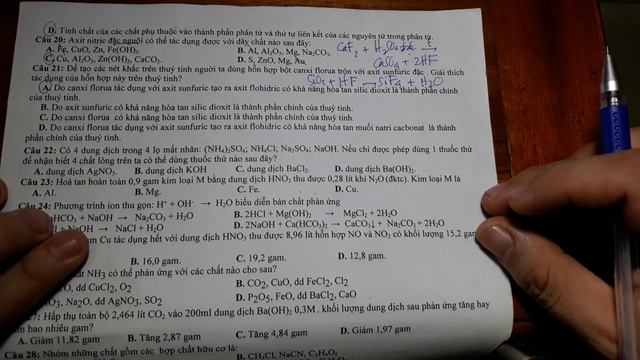 D. Tính chất của các chất phụ thuộc vào thành phần phân tử và thứ tự liên kết của các nguyên tử trong phân tử.
Câu 20: Axit nitric đặc nguội có thể tác dụng được với dãy chất nào sau đây:
A. Fe, CuO, Zn, Fe(OH)₃. B. Al, Al₂O₃, Mg, Na₂CO₃. CaF₂ + H₂SO₄
C. Cu, Al₂O₃, Zn(OH)₂, CaCO₃. D. S, ZnO, Mg, Au. CaSO₄ + 2HF
Câu 21: Để tạo các nét khắc trên thuỷ tinh người ta dùng hỗn hợp bột canxi florua trộn với axit sunfuric đặc . Giải thích
tác dụng của hỗn hợp này trên thuỷ tinh? SiO₂ + HF → SiF₄ + H₂O
A. Do canxi florua tác dụng với axit sunfuric tạo ra axit flohidric có khả năng hòa tan silic dioxit là thành phần chính
của thuỷ tinh.
B. Do axit sunfuric có khả năng hòa tan silic dioxit là thành phần chính của thuỷ tinh.
C. Do canxi florua có khả năng hòa tan silic dioxit là thành phần chính của thuỷ tinh.
D. Do canxi florua tác dụng với axit sunfuric tạo ra axit flohidric có khả năng hòa tan muối natri cacbonat là thành
phần chính của thuỷ tinh.
Câu 22: Có 4 dung dịch trong 4 lọ mất nhãn: (NH₄)₂SO₄; NH₄Cl; Na₂SO₄; NaOH. Nếu chỉ được phép dùng 1 thuốc thử
để nhận biết 4 chất lỏng trên ta có thể dùng thuốc thử nào sau đây?
A. dung dịch AgNO₃. B. dung dịch KOH C. dung dịch BaCl₂. D. dung dịch Ba(OH)₂.
Câu 23: Hoà tan hoàn toàn 0,9 gam kim loại M bằng dung dịch HNO₃ thu được 0,28 lít khí N₂O (đktc). Kim loại M là
A. Al. B. Mg. C. Fe. D. Cu.
Câu 24: Phương trình ion thu gọn: H⁺ + OH⁻ → H₂O biểu diễn bản chất phản ứng
HCO₃ + NaOH → Na₂CO₃ + H₂O B. 2HCl + Mg(OH)₂ → MgCl₂ + 2H₂O
+ NaOH → NaCl + H₂O D. 2NaOH + Ca(HCO₃)₂ → CaCO₃↓ + Na₂CO₃ + 2H₂O
Cu tác dụng hết với dung dịch HNO₃ thu được 8,96 lít hỗn hợp NO và NO₂ có khối lượng 15,2 gam
B. 16,0 gam. C. 19,2 gam. D. 12,8 gam.
NH₃ có thể phản ứng với các chất nào cho sau?
dd CuCl₂, O₂ B. CO₂, CuO, dd FeCl₂, Cl₂
Na₂O, dd AgNO₃, SO₂ D. P₂O₅, FeO, dd BaCl₂, CaO
27: Hấp thụ toàn bộ 2,464 lít CO₂ vào 200ml dung dịch Ba(OH)₂ 0,3M . khối lượng dung dịch sau phản ứng tăng hay
bao nhiêu gam?
A. Giảm 11,82 gam B. Tăng 2,87 gam C. Tăng 4,84 gam D. Giảm 1,97 gam
Câu 28: Nhóm những chất gồm các hợp chất hữu cơ là:
B. CH₃Cl, NaCN,